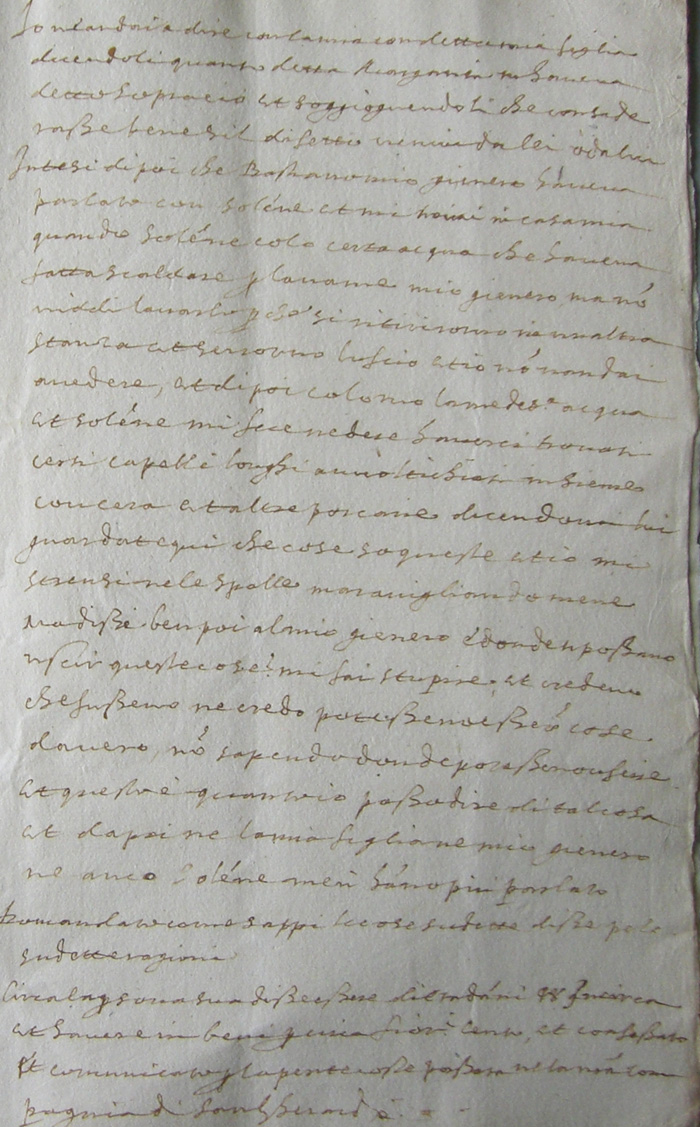 Io n'eandai a dire con la mia condetta mia figlia
dicendoli quanto detta Margarita haveva
detto sopra ciò et soggiognendoli che conside
rasse bene s'il difetto veniva da lei o da lui
Intesi di poi che Bastiano mio gienero haveva
parlato con Solène et mi trovai in casa mia
quando Solène colò certa acqua che haveva
fatta scaldare p lavarne mio gienero ma nõ
viddi lavarlo pche si ritirorono in un altra
stanza et serrorno luscio et io nõ v'andai
a vedere, et di poi colorno la medesª acqua
et Solène mi fece vedere haverci trovati
certi capelli longhi insieme
con cera et altre porcarie dicendomi
guardate qui che cose so queste et io mi
strensi ne le spalle maravigliandomene
Ma dissi ben poi al mio gienero è donde possano
uscir queste cose? mi fai stupire, et credeva
che fussero ne credo potessero esser cose
da vero, nõ sapendo donde potessero uscire
et questo è quanto io posso dire di tal cosa
et da poi ne la mia figlia ne mio gienero
ne anco Solène me n' hãno più parlato
Domandato come sappi le cose sudette disse p le
sudette ragioni
Circa la psona sua disse essere di età d'ãni 48 In circa
et havere in beni p circa fiori cento, et confessato
et comunicato p la pentecoste passata ne la vnã com
pagnia di